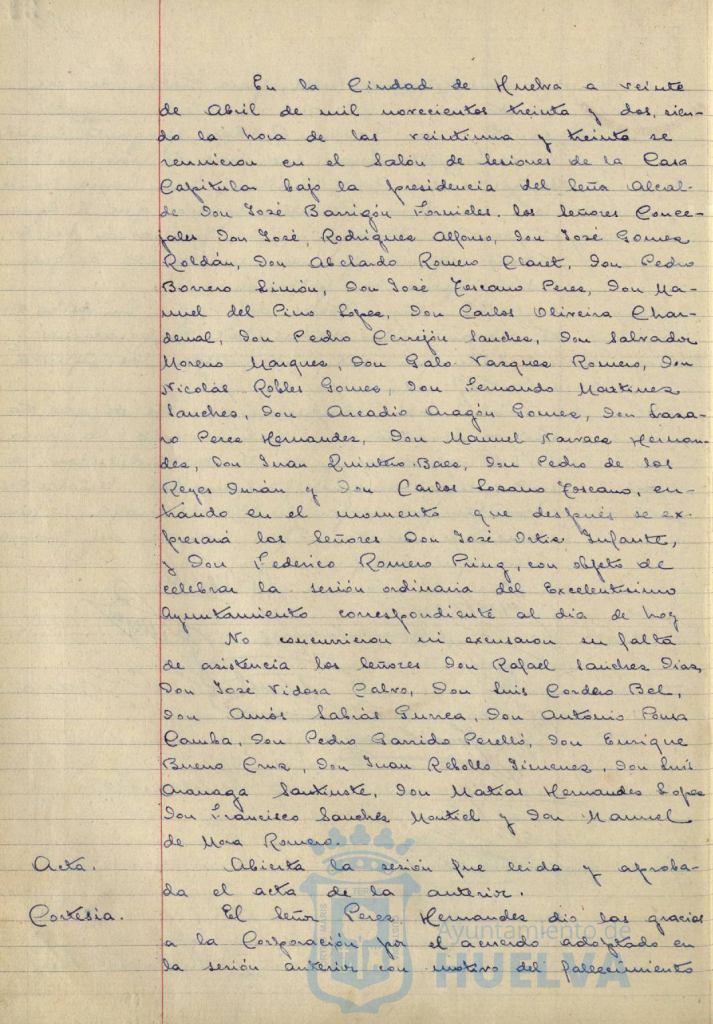 En la Ciudad de Huelva a veinte
de Abril de mil novecientos treinta y dos, sien-
do la hora de las veintiuna y treinta se
reunieron en el Salón de Sesiones de la Casa
Capitular bajo la presidencia del Señor Alcal-
de Don José Barrigón Fornieles, los Señores Conce-
jales Don José, Rodríguez Alfonso, Don José Gomez
Roldán, Don Abelardo Romero Claret, Don Pedro
Borrero Limón, Don José Toscano Perez, Don Ma-
nuel del Pino Lopez, Don Carlos Oliveira Char-
denal, Don Pedro Cerrejón Sanchez, Don Salvador
Moreno Marquez, Don Galo Vazquez Romero, Don
Nicolás Robles Gomez, Don Fernando Martinez
Sanchez, Don Arcadio Aragón Gomez, Don Laza-
ro Perez Hernandez, Don Manuel Narvaez Hernan-
dez, Don Juan Quintero Baez, Don Pedro de los
Reyes Durán y Don Carlos Lozano Toscano, en-
trando en el momento que después se ex-
presará los Señores Don José Ortiz Infante,
y Don Federico Romero Prinz, con objeto de
celebrar la sesión ordinaria del Excelentisimo
Ayuntamiento correspondiente al dia de hoy
No concurrieron ni excusaron su falta
de asistencia los Señores Don Rafael Sanchez Diaz,
Don José Vidosa Calvo, Don Luis Cordero Bel,
Don Amós Sabrás Gurrea, Don Antonio Pousa
Camba, Don Pedro Garrido Perelló, Don Enrique
Bueno Cruz, Don Juan Rebollo Jimenez, Don Luis
Aranaga Santinoté, Don Matias Hernandez Lopez
Don Francisco Sanchez Montiel y Don Manuel
de Mora Romero.
Acta. Abierta la sesión fue leida y aproba-
da el acta de la anterior.
Cortesia. El Señor Perez Hernandez dió las gracias
a la Corporación por el acuerdo adoptado en
la sesión anterior con motivo del fallecimiento
Ayuntamiento de
HUELVA